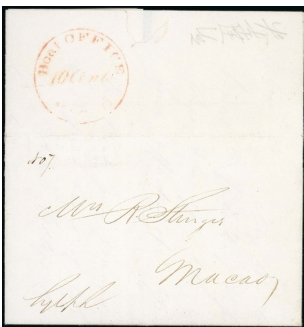 POST OFFICE
10 Cents
No 7.
Mrs R. Sturgis
Macao
Sylph